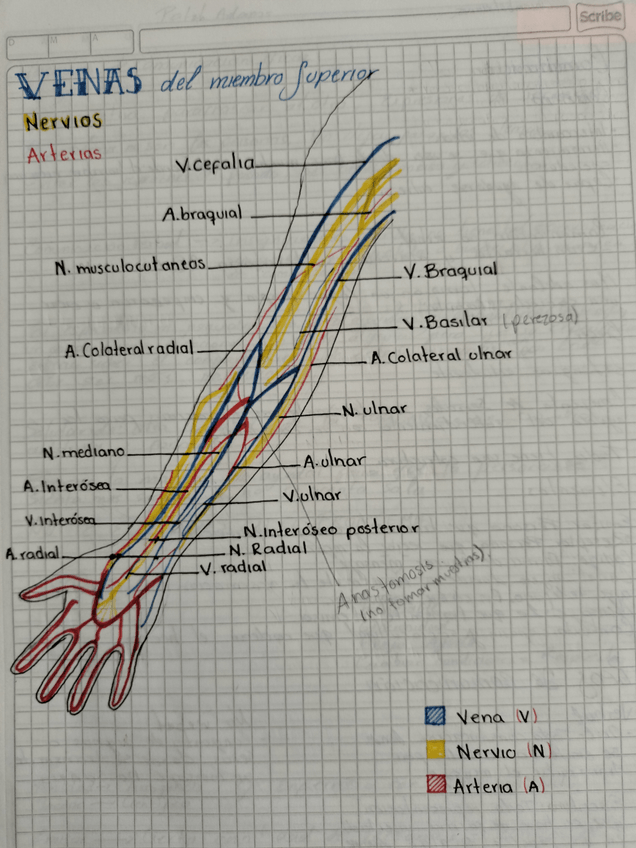 Scribe
D M A
VENAS del miembro Superior
Nervios
Arterias
V.cefalia
A.braquial
N. musculocutaneos
V. Braquial
V. Basilar (perezosa)
A. Colateral radial
A. Colateral ulnar
N. ulnar
N. mediano
A. ulnar
A. Interósea
V. ulnar
V. Interósea
N. Interóseo posterior
A. radial
N. Radial
V. radial
Anastomosis
(no tomar muestras)
Vena (V)
Nervio (N)
Arteria (A)